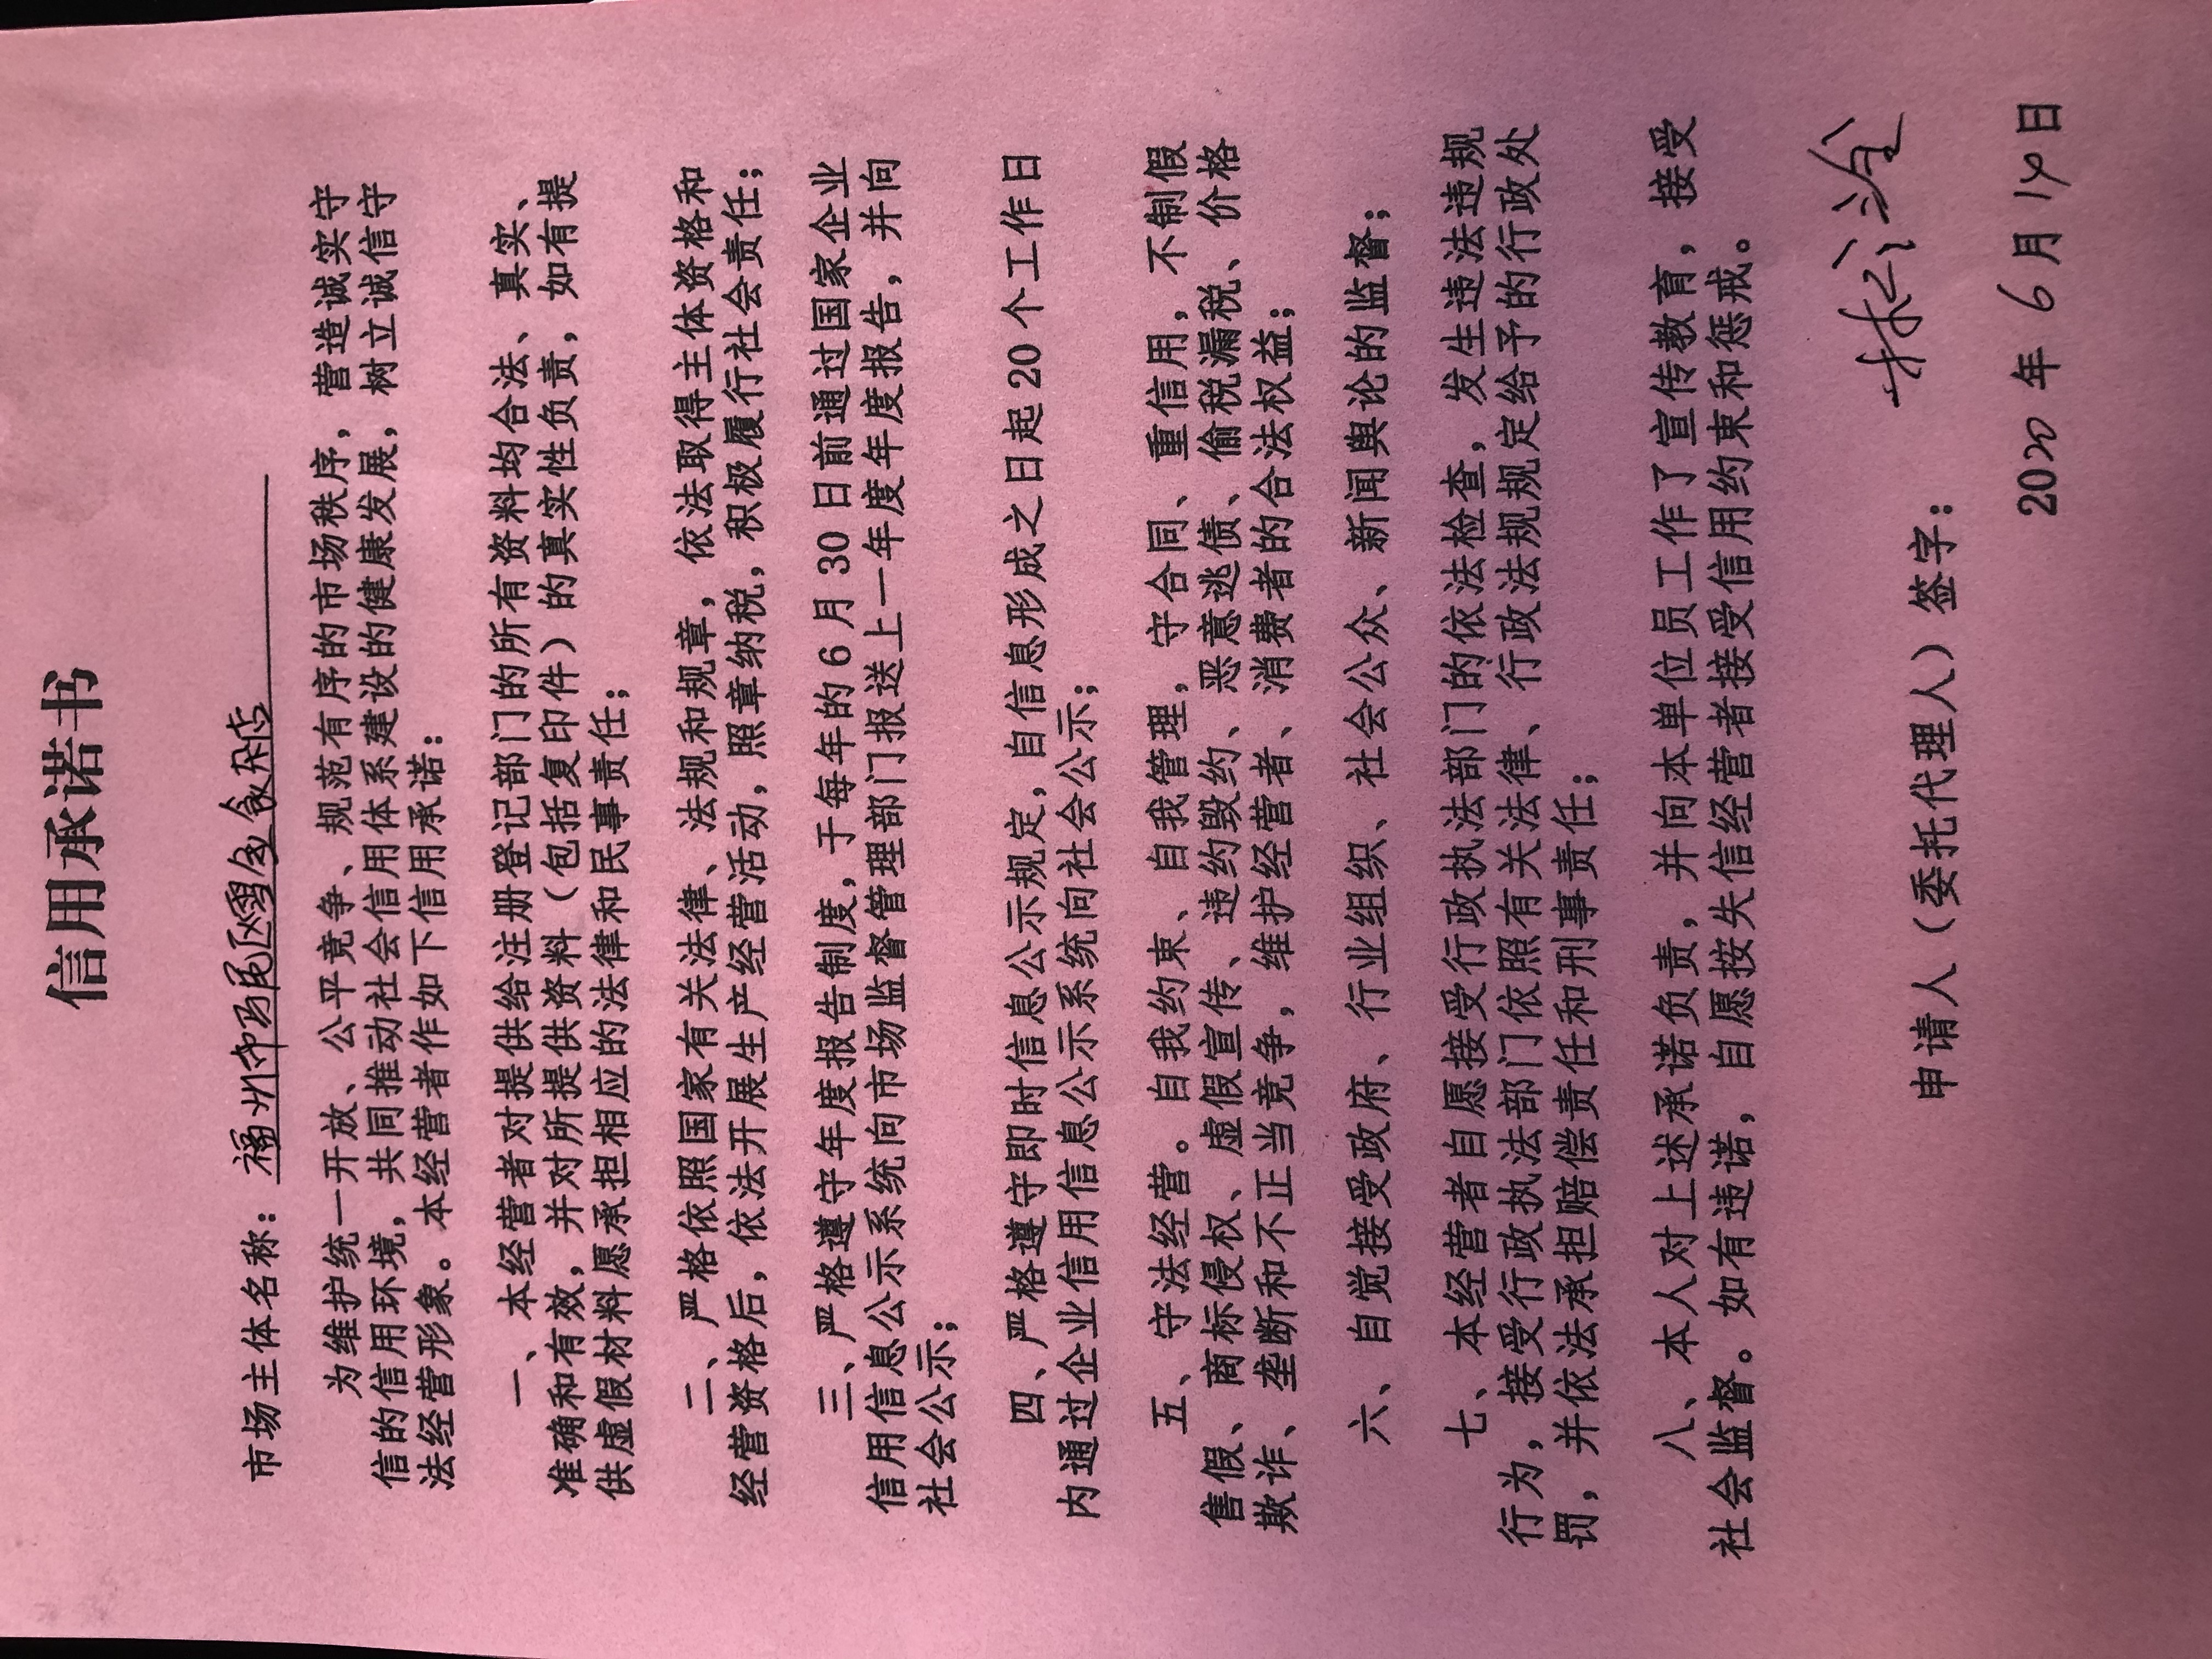 信用承诺书
市场主体名称：福州市马尾区雪金食杂店
为维护统一开放、公平竞争、规范有序的市场秩序，营造诚实守
信的信用环境，共同推动社会信用体系建设的健康发展，树立诚信守
法经营形象。本经营者作如下信用承诺：
一、本经营者对提供给注册登记部门的所有资料均合法、真实、
准确和有效，并对所提供资料（包括复印件）的真实性负责，如有提
供虚假材料愿承担相应的法律和民事责任；
二、严格依照国家有关法律、法规和规章，依法取得主体资格和
经营资格后，依法开展生产经营活动，照章纳税，积极履行社会责任；
三、严格遵守年度报告制度，于每年的6月30日前通过国家企业
信用信息公示系统向市场监督管理部门报送上一年度年度报告，并向
社会公示；
四、严格遵守即时信息公示规定，自信息形成之日起20个工作日
内通过企业信用信息公示系统向社会公示；
五、守法经营。自我约束、自我管理，守合同、重信用，不制假
售假、商标侵权、虚假宣传、违约毁约、恶意逃债、偷税漏税、价格
欺诈、垄断和不正当竞争，维护经营者、消费者的合法权益；
六、自觉接受政府、行业组织、社会公众、新闻舆论的监督；
七、本经营者自愿接受行政执法部门的依法检查，发生违法违规
行为，接受行政执法部门依照有关法律、行政法规规定给予的行政处
罚，并依法承担赔偿责任和刑事责任；
八、本人对上述承诺负责，并向本单位员工作了宣传教育，接受
社会监督。如有违诺，自愿按失信经营者接受信用约束和惩戒。
申请人（委托代理人）签字：
2020年6月14日